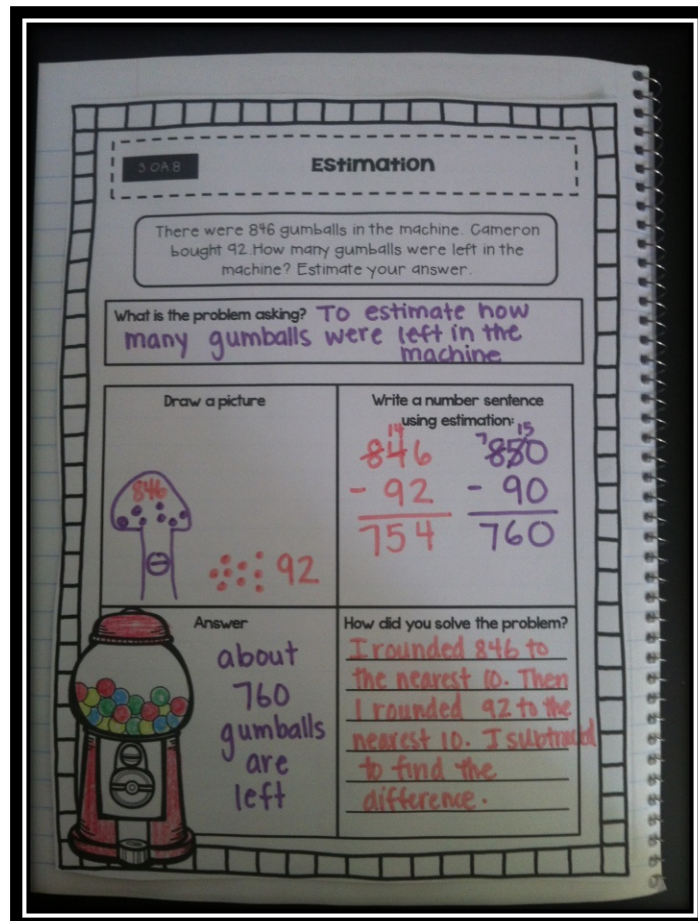 3.OA.8
Estimation
There were 846 gumballs in the machine. Cameron
bought 92.How many gumballs were left in the
machine? Estimate your answer.
What is the problem asking? To estimate how
many gumballs were left in the
machine
Draw a picture
846
92
Write a number sentence
using estimation:
14
846
- 92
754
7 15
850
- 90
760
Answer
about
760
gumballs
are
left
How did you solve the problem?
I rounded 846 to
the nearest 10. Then
I rounded 92 to the
nearest 10. I
to find the
difference.